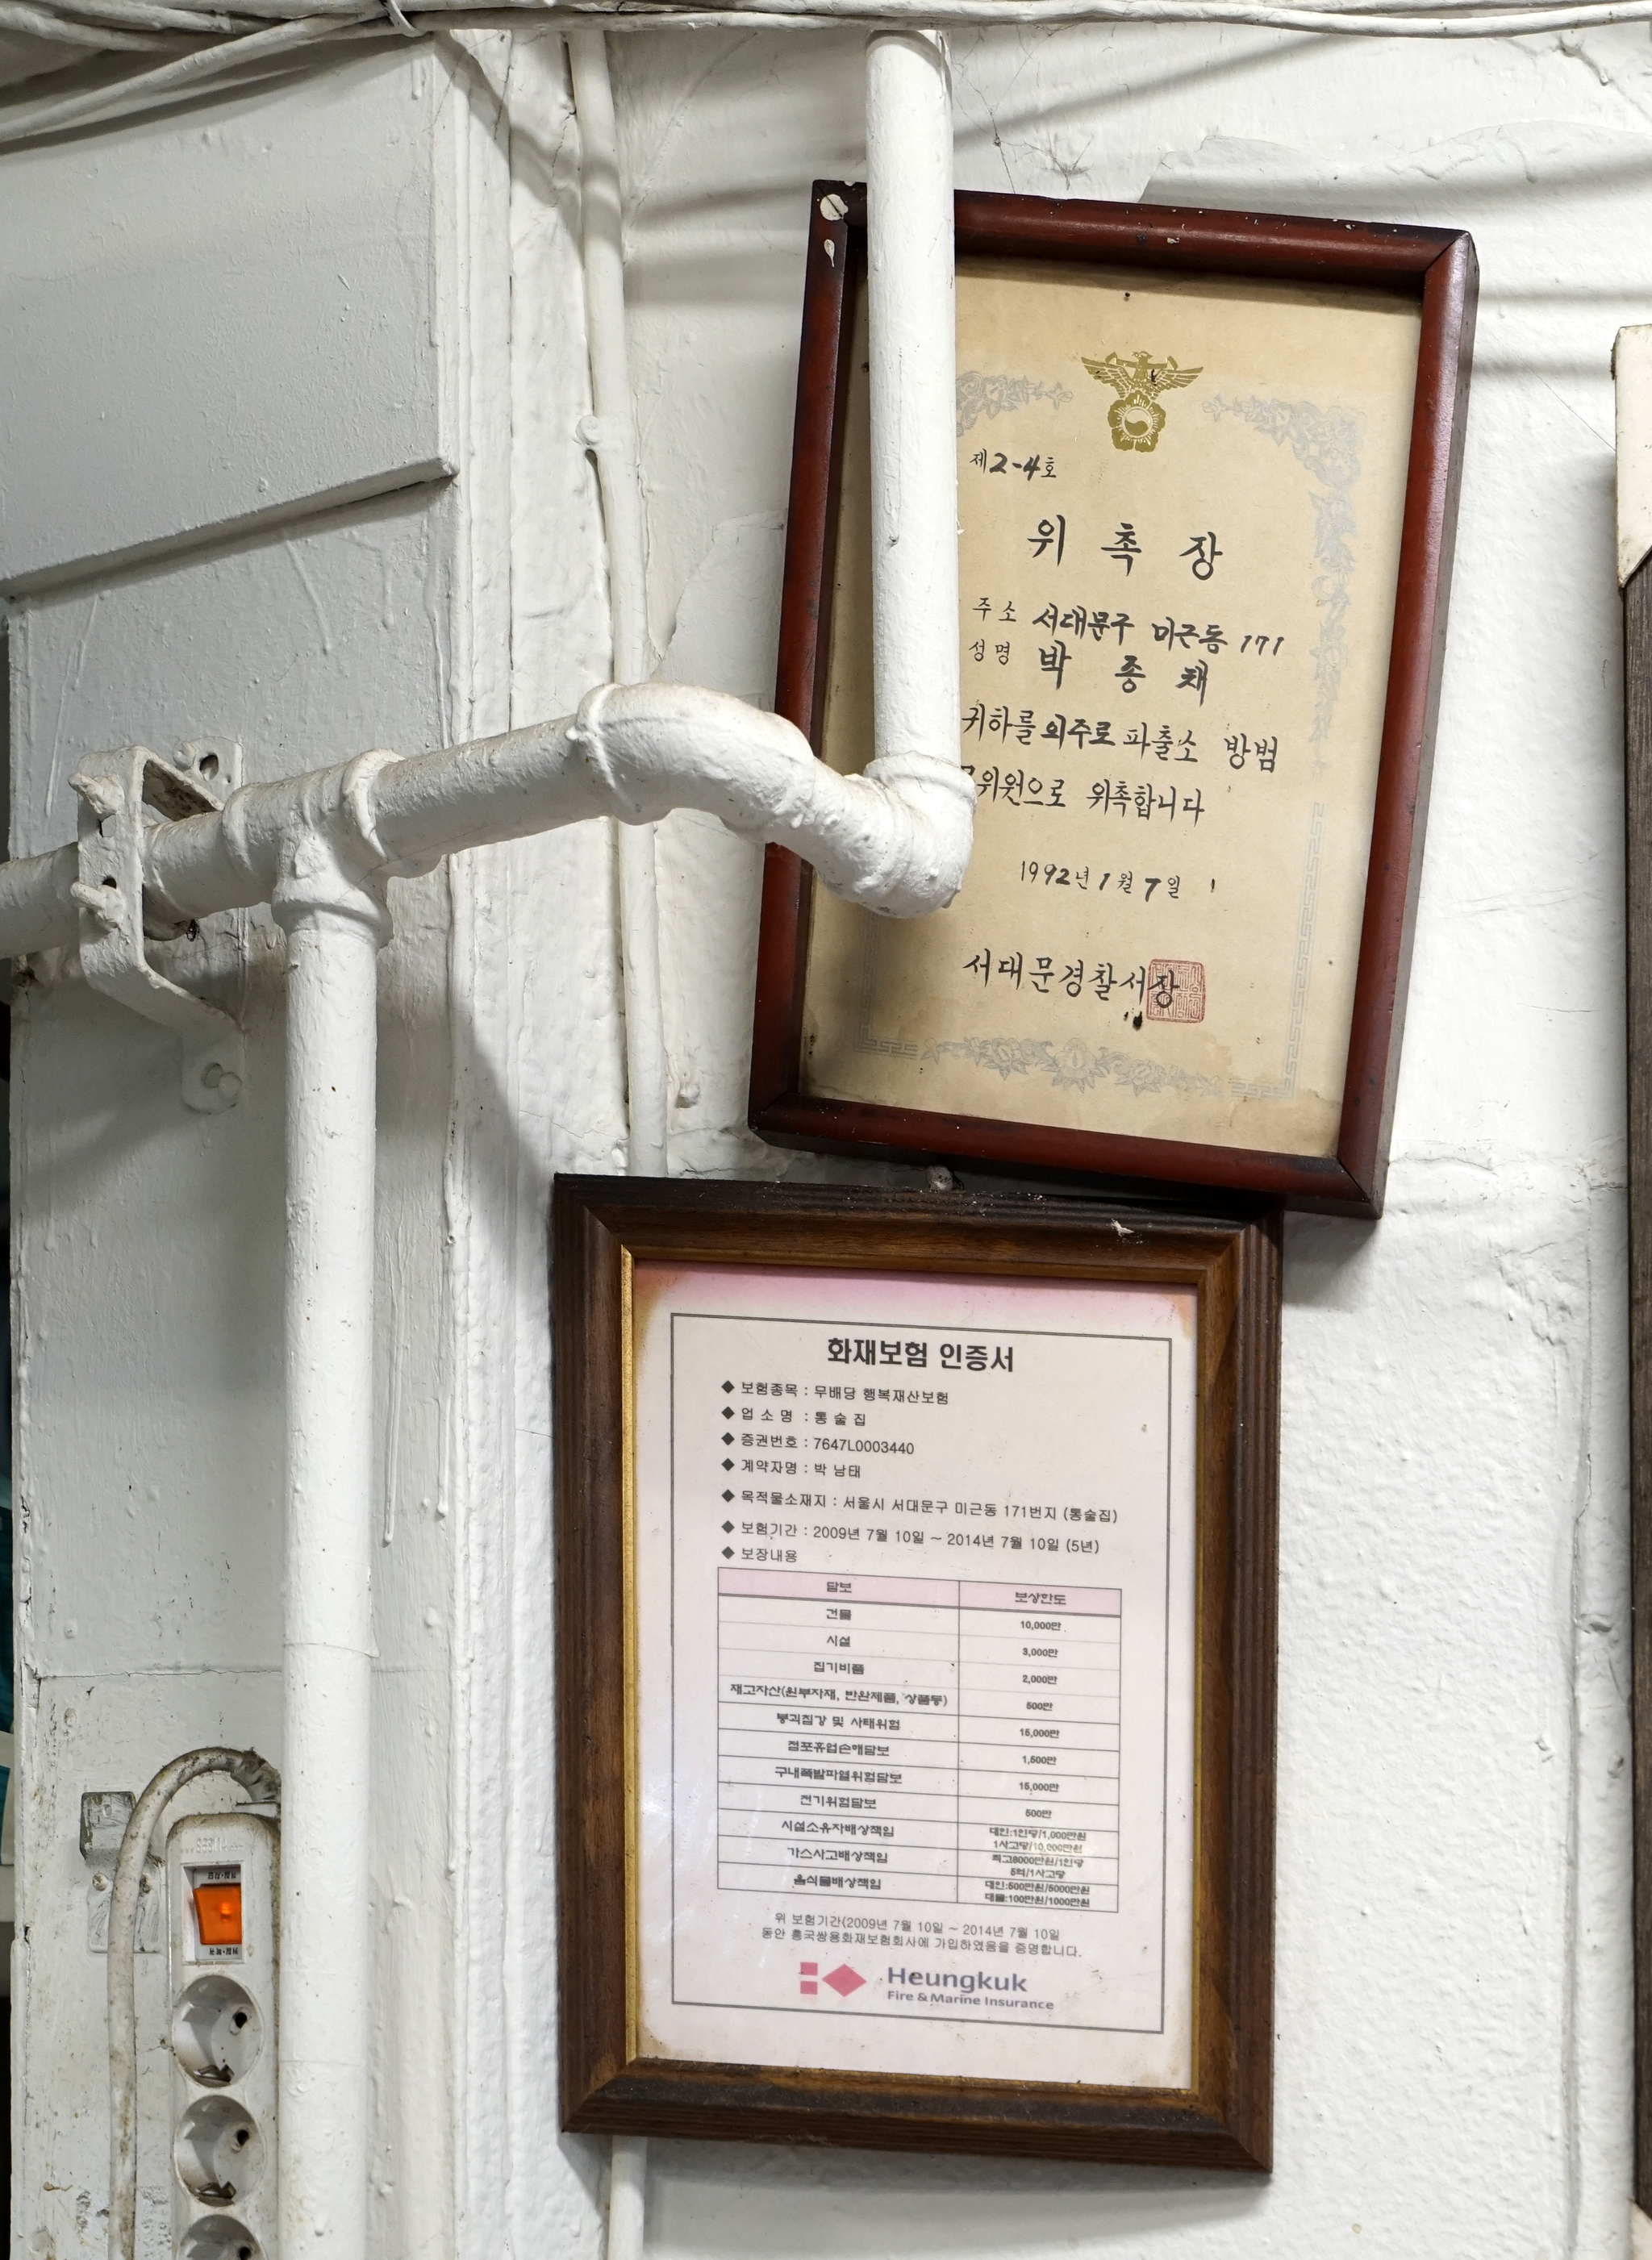 제2-4호
위 촉 장
주소 서대문구 미근동 171
성명 박 종 채
귀하를 외주로 파출소 방범
위원으로 위촉합니다
1992년 1월 7일
서대문경찰서장
화재보험 인증서
◆ 보험종목 : 무배당 행복재산보험
◆ 업 소 명 : 통 술 집
◆ 증권번호 : 7647L0003440
◆ 계약자명 : 박 남태
◆ 목적물소재지 : 서울시 서대문구 미근동 171번지 (통술집)
◆ 보험기간 : 2009년 7월 10일 ~ 2014년 7월 10일 (5년)
◆ 보장내용
담보 보상한도
건물 10,000만
시설 3,000만
집기비품 2,000만
재고자산(원부자재, 반완제품, 상품등) 500만
붕괴침강 및 사태위험 15,000만
점포휴업손해담보 1,500만
구내폭발파열위험담보 15,000만
전기위험담보 500만
시설소유자배상책임 대인:1인당/1,000만원
1사고당/10,000만원
가스사고배상책임 최고8000만원/1인당
5억/1사고당
음식물배상책임 대인:500만원/5000만원
대물:100만원/1000만원
위 보험기간(2009년 7월 10일 ~ 2014년 7월 10일
동안 흥국쌍용화재보험회사에 가입하였음을 증명합니다.
Heungkuk
Fire & Marine Insurance